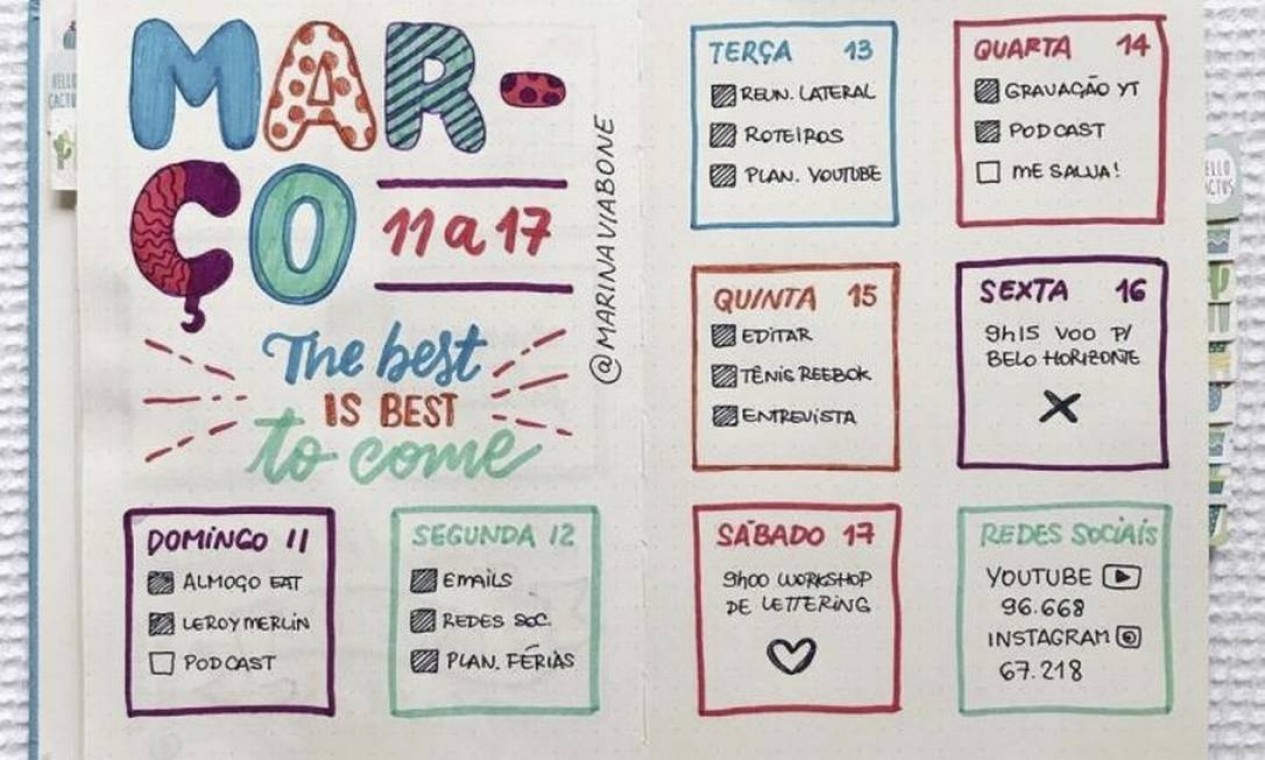 MAR-
ÇO
11 a 17
@MARINAVIABONE
The best
IS BEST
to come
DOMINGO 11
ALMOÇO EAT
LEROY MERLIN
PODCAST
SEGUNDA 12
EMAILS
REDES SOC.
PLAN. FÉRIAS
TERÇA 13
REUN. LATERAL
ROTEIROS
PLAN. YOUTUBE
QUARTA 14
GRAVAÇÃO YT
PODCAST
ME SALVA!
QUINTA 15
EDITAR
TÊNIS REEBOK
ENTREVISTA
SEXTA 16
9h15 VOO P/
BELO HORIZONTE
SÁBADO 17
9h00 WORKSHOP
DE LETTERING
REDES SOCIAIS
YOUTUBE
96.668
INSTAGRAM
67.218
HELLO
CACTUS
ELLO
CTUS